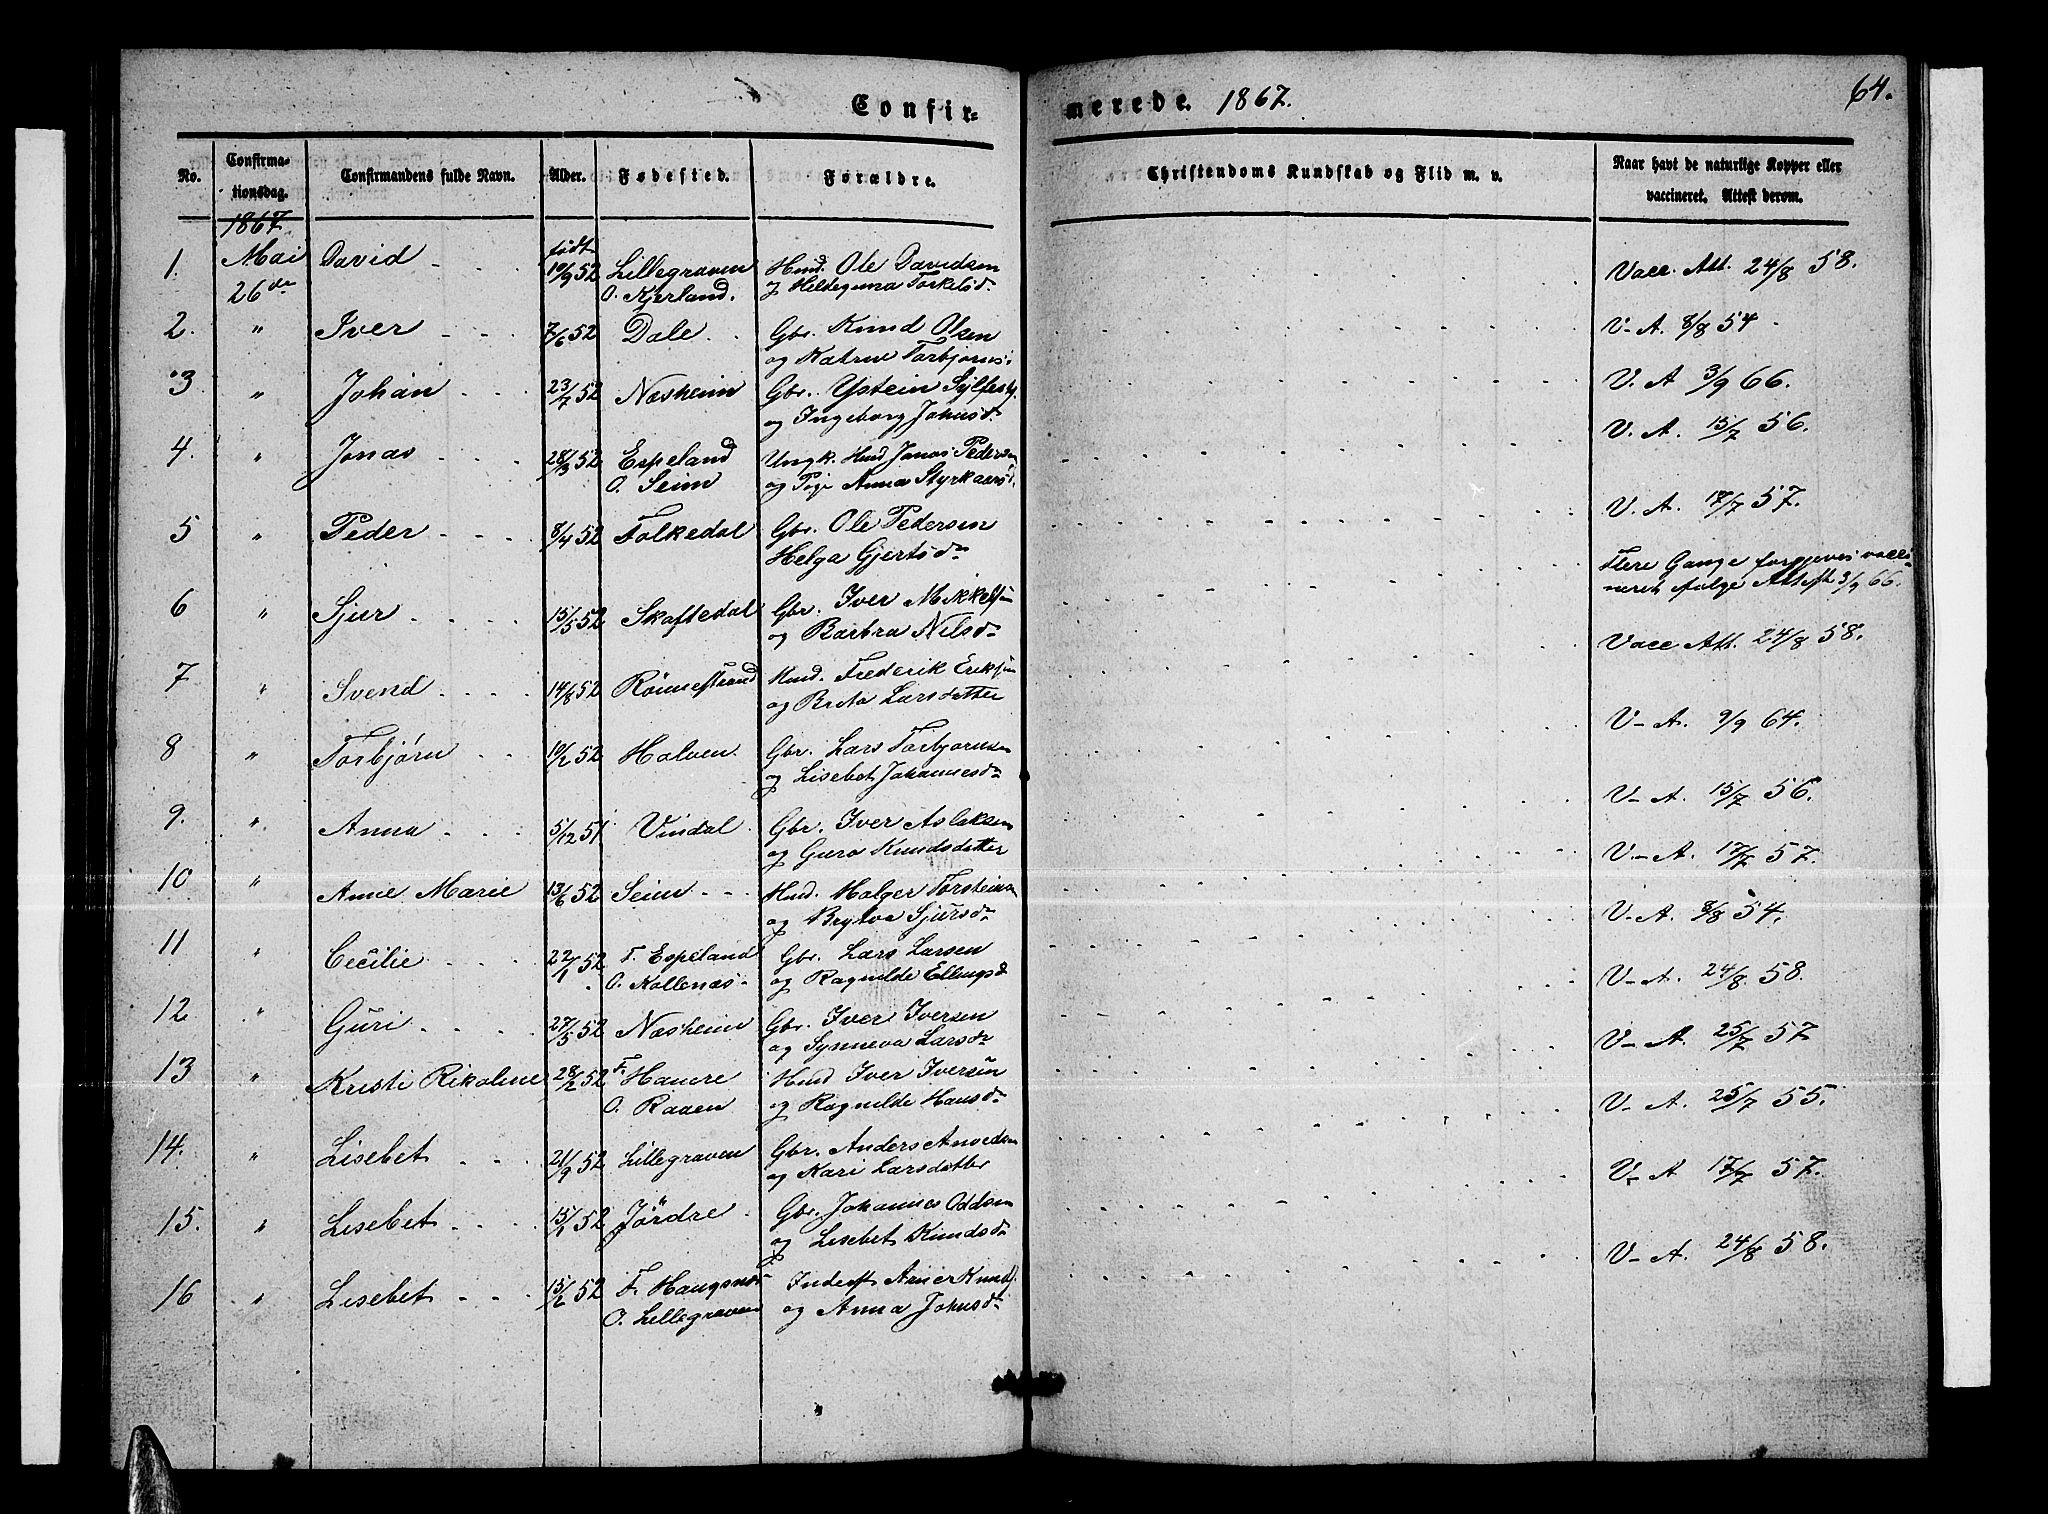 Confir-
merede. 1867.
64.
No.
Confirma-
tionsdag.
Confirmandens fulde Navn.
Alder.
Fødested.
Forældre.
Christendoms Kundskab og Flid m. v.
Naar havt de naturlige Kopper eller
vaccineret. Attest derom.
1867
født
1. Mai David 10/9 52 Lillegraven Hmd. Ole Davidsen Vacc. Att. 24/8 58.
26de O. Kjerland. og Torkelsd.
2. " Iver 7/6 52 Dale Gbr. Knud Olsen V-A. 8/8 54
og Katrine Torbjørns:
3 " Johan 23/7 52 Næsheim Gbr. Ystein V. A 3/9 66.
og Ingeborg Johnsd.
4. " Jonas 28/3 52 Espeland Ungk. Hmd Jonas Pedersen V. A. 15/7 56.
O. Seim og Pige Anna Styrkaarsd.
5 " Peder 8/4 52 Folkedal Gbr. Ole Pedersen V. A. 17/7 57.
Helga Gjertsdr
6 " Sjur 15/5 52 Skaftedal Gbr. Iver Mikkelsen Flere Gange forgjeves vacci-
og Barbra Nilsdr neret ifølge Attest 3/9 66.
7 " Svend 14/8 52 Rønnestrand Hmd. Frederik Eriksen Vacc Att. 24/8 58.
og Brita Larsdatter
8 " Torbjørn 10/2 52 Holven Gbr. Lars Torbjørnsen V-A. 9/9 64.
og Lisebet Johannesdr
9. " Anna 5/12 51 Vindal Gbr. Iver Aslaksen V-A. 15/7 56.
og Guro Knudsdatter
10 " Anne Marie 13/6 52 Seim Hmd. Holger Torsteinsen V-A. 17/7 57.
og Brytva Sjursdr
11 " Cecilie 22/1 52 F. Espeland Gbr. Lars Larsen V-A. 8/8 54.
O. Kollenæs og Ragnilde Ellingsd
12. " Guri 27/5 52 Næsheim Gbr. Iver Iversen V-A. 24/8. 58.
og Synneva Larsdr
13 " Kristi Rikoline 28/2 52 F. Hamre Hmd Iver Iversen V-A. 25/7 57
O. Raaen og Ragnilde Hansdr
14. " Lisebet 21/9 52 Lillegraven Gbr. Anders Arvedsen V-A. 25/7 55.
og Kari Larsdatter
15. " Lisebet 52 Jørdre Gbr. Johannes Oddsen V-A 17/7 57.
og Lisebet Knudsdr
16 " Lisebet 15/2 52 F. Haugsnæs Inderst Knuds. V-A. 24/8 58.
O. Lillegraven og Anna Johnsdr